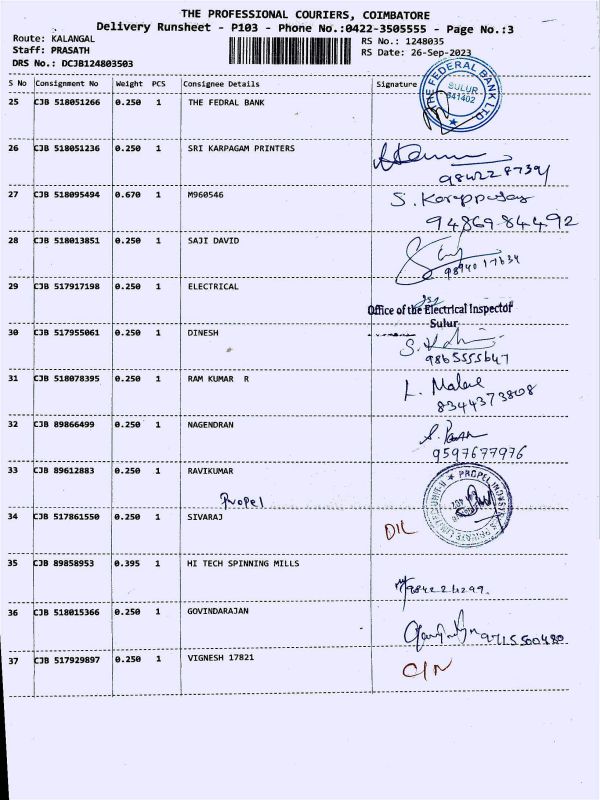 THE PROFESSIONAL COURIERS, COIMBATORE
Delivery Runsheet - P103 - Phone No.:0422-3505555 - Page No.:3
Route: KALANGAL
RS No.: 1248035
Staff: PRASATH
RS Date: 26-Sep-2023
DRS No.: DCJB124803503
S No Consignment No Weight PCS Consignee Details Signature
THE FEDERAL BANK LTD
SULUR
641402
25 CJB 518051266 0.250 1 THE FEDRAL BANK
26 CJB 518051236 0.250 1 SRI KARPAGAM PRINTERS
27 CJB 518095494 0.670 1 M960546 S. Karuppusamy
9486984492
28 CJB 518013851 0.250 1 SAJI DAVID
9894017634
29 CJB 517917198 0.250 1 ELECTRICAL
Office of the Electrical Inspector
Sulur
30 CJB 517955061 0.250 1 DINESH
9865555647
31 CJB 518078395 0.250 1 RAM KUMAR R
8344373808
32 CJB 89866499 0.250 1 NAGENDRAN
9597677976
33 CJB 89612883 0.250 1 RAVIKUMAR
Propel
34 CJB 517861550 0.250 1 SIVARAJ D/L
35 CJB 89858953 0.395 1 HI TECH SPINNING MILLS
36 CJB 518015366 0.250 1 GOVINDARAJAN
9715500480
37 CJB 517929897 0.250 1 VIGNESH 17821 C/N